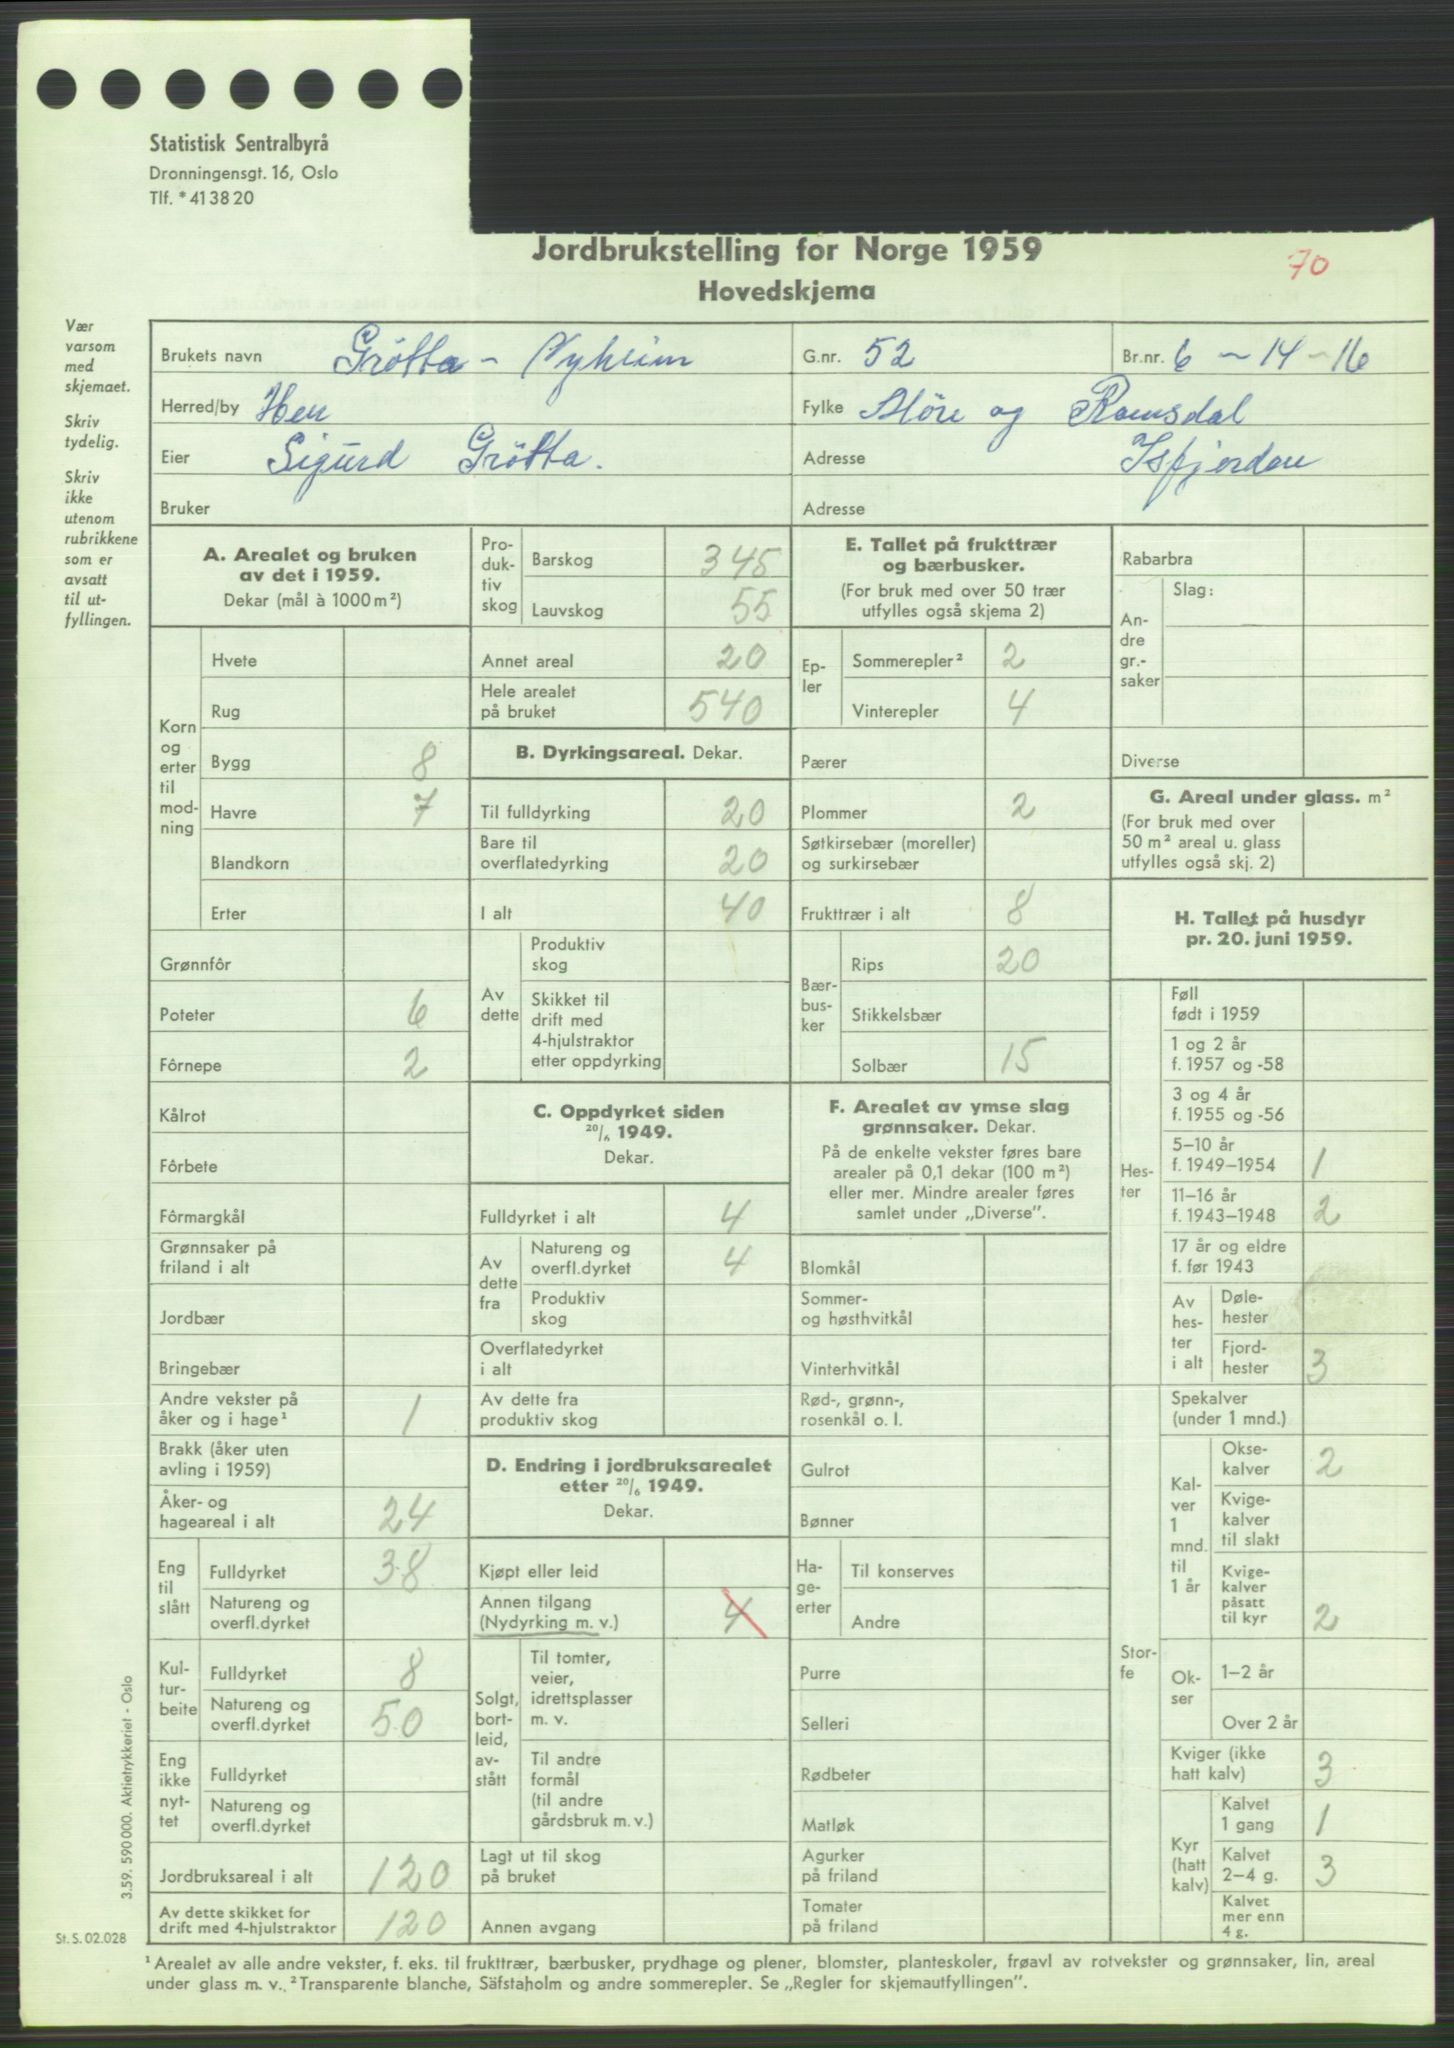 Statistisk Sentralbyrå
Dronningensgt. 16, Oslo
Tlf. *41 38 20
Jordbrukstelling for Norge 1959
70
Hovedskjema
Vær
varsom
med
skjemaet.
Skriv
tydelig.
Skriv
ikke
utenom
rubrikkene
som er
avsatt
til ut-
fyllingen.
Brukets navn Grötta - Nyheim G.nr. 52 Br.nr. 6 - 14 - 16
Herred/by Hen Fylke Möre og Romsdal
Eier Sigurd Grötta. Adresse Isfjorden
Bruker Adresse
A. Arealet og bruken
av det i 1959.
Dekar (mål à 1000 m²)
Korn
og
erter
til
mod-
ning
Hvete
Rug
Bygg 8
Havre 7
Blandkorn
Erter
Grønnfôr
Poteter 6
Fôrnepe 2
Kålrot
Fôrbete
Fôrmargkål
Grønnsaker på
friland i alt
Jordbær
Bringebær
Andre vekster på
åker og i hage¹ 1
Brakk (åker uten
avling i 1959)
Åker- og
hageareal i alt 24
Eng
til
slått
Fulldyrket 38
Natureng og
overfl.dyrket
Kul-
tur-
beite
Fulldyrket 8
Natureng og
overfl.dyrket 50
Eng
ikke
nyt-
tet
Fulldyrket
Natureng og
overfl.dyrket
Jordbruksareal i alt 120
Av dette skikket for
drift med 4-hjulstraktor 120
Pro-
duk-
tiv
skog
Barskog 345
Lauvskog 55
Annet areal 20
Hele arealet
på bruket 540
B. Dyrkingsareal. Dekar.
Til fulldyrking 20
Bare til
overflatedyrking 20
I alt 40
Av
dette
Produktiv
skog
Skikket til
drift med
4-hjulstraktor
etter oppdyrking
C. Oppdyrket siden
20/6 1949.
Dekar.
Fulldyrket i alt 4
Av
dette
fra
Natureng og
overfl.dyrket 4
Produktiv
skog
Overflatedyrket
i alt
Av dette fra
produktiv skog
D. Endring i jordbruksarealet
etter 20/6 1949.
Dekar.
Kjøpt eller leid
Annen tilgang
(Nydyrking m. v.) 4
Solgt,
bort-
leid,
av-
stått
Til tomter,
veier,
idrettsplasser
m. v.
Til andre
formål
(til andre
gårdsbruk m. v.)
Lagt ut til skog
på bruket
Annen avgang
E. Tallet på frukttrær
og bærbusker.
(For bruk med over 50 trær
utfylles også skjema 2)
Ep-
ler
Sommerepler² 2
Vinterepler 4
Pærer
Plommer 2
Søtkirsebær (moreller)
og surkirsebær
Frukttrær i alt 8
Bær-
bus-
ker
Rips 20
Stikkelsbær
Solbær 15
F. Arealet av ymse slag
grønnsaker. Dekar.
På de enkelte vekster føres bare
arealer på 0,1 dekar (100 m²)
eller mer. Mindre arealer føres
samlet under „Diverse”.
Blomkål
Sommer-
og høsthvitkål
Vinterhvitkål
Rød-, grønn-,
rosenkål o. l.
Gulrot
Bønner
Ha-
ge-
erter
Til konserves
Andre
Purre
Selleri
Rødbeter
Matløk
Agurker
på friland
Tomater
på friland
Rabarbra
An-
dre
gr.-
saker
Slag:
Diverse
G. Areal under glass. m²
(For bruk med over
50 m² areal u. glass
utfylles også skj. 2)
H. Tallet på husdyr
pr. 20. juni 1959.
Hes-
ter
Føll
født i 1959
1 og 2 år
f. 1957 og -58
3 og 4 år
f. 1955 og -56
5–10 år
f. 1949–1954 1
11–16 år
f. 1943–1948 2
17 år og eldre
f. før 1943
Av
hes-
ter
i alt
Døle-
hester
Fjord-
hester 3
Stor-
fe
Spekalver
(under 1 mnd.)
Kal-
ver
1
mnd.
til
1 år
Okse-
kalver 2
Kvige-
kalver
til slakt
Kvige-
kalver
påsatt
til kyr 2
Ok-
ser
1–2 år
Over 2 år
Kviger (ikke
hatt kalv) 3
Kyr
(hatt
kalv)
Kalvet
1 gang 1
Kalvet
2–4 g. 3
Kalvet
mer enn
4 g.
3.59. 590 000. Aktietrykkeriet - Oslo
St. S. 02.028
¹ Arealet av alle andre vekster, f. eks. til frukttrær, bærbusker, prydhage og plener, blomster, planteskoler, frøavl av rotvekster og grønnsaker, lin, areal
under glass m. v. ² Transparente blanche, Säfstaholm og andre sommerepler. Se „Regler for skjemautfyllingen”.